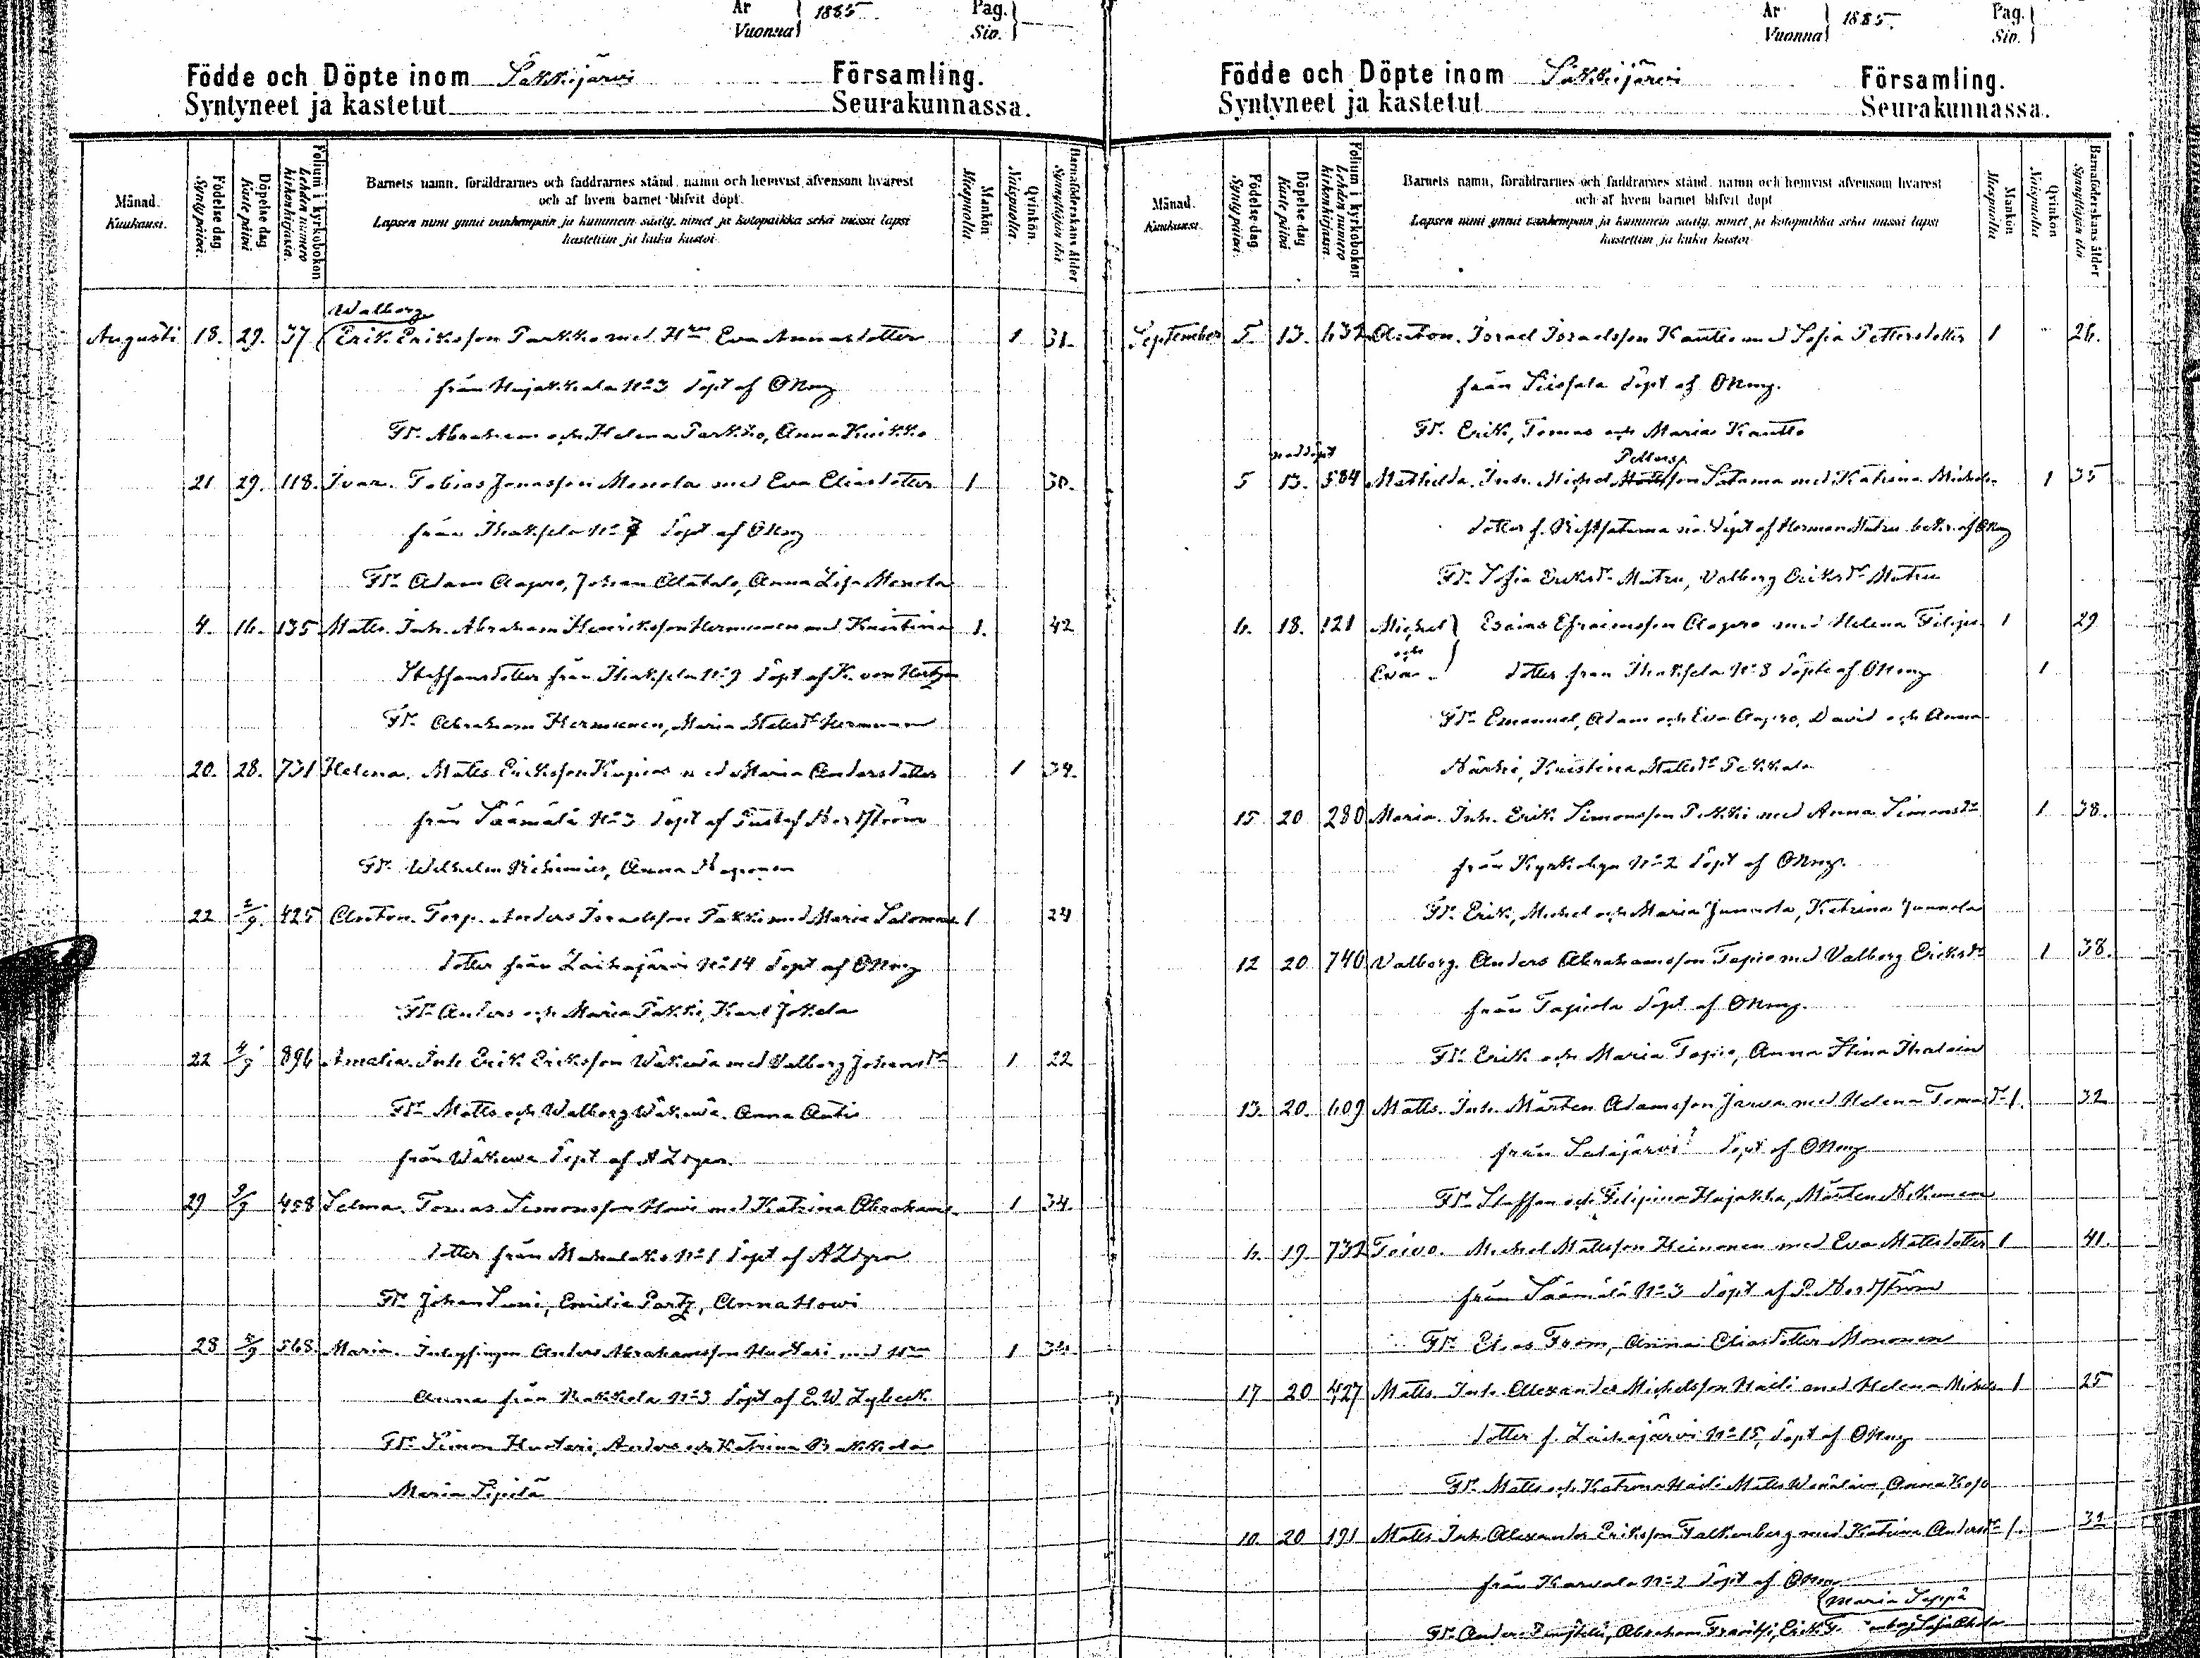 År
Vuonna
1885.
Pag.
Siv.
Födde och Döpte inom Säkkijärvi Församling.
Syntyneet ja kastetut Seurakunnassa.
Månad.
Kuukausi.
Födelse dag
Syntypäivä.
Döpelse dag
Kaste päivä
Folium i kyrkoboken
Lehden numero kirkonkirjassa.
Barnets namn, föräldrarnes och faddrarnes stånd, namn och hemvist äfvensom hvarest
och af hvem barnet blifvit döpt.
Lapsen nimi ynnä vanhempain ja kummein sääty, nimet ja kotopaikka sekä missä lapsi
kastettiin ja kuka kastoi.
Mankön
Miespuolia
Qvinkön.
Naispuolia.
Barnaföderskans ålder
Synnyttäjän ikä
Walborg
Augusti 18. 29. 37 Erik Eriksson Parkko med Hru Eva Annasdotter 1 31.
från Hujakkala No 3 döpt af
Fdr Abraham och Helena Parkko, Anna Kuikko
21 29. 118. Ivar. Tobias Jonasson Monola med Eva Eliasdotter 1 30.
från Ihaksela No 7 döpt af
Fdr Adam Aapro, Johan Alatalo, Anna Lisa Monola
4. 16. 135 Matts. Inh. Abraham Henriksson Hermunen med Kristina 1. 42
Staffansdotter från Ihaksela No 9 döpt af K. von Hertzen
Fdr Abraham Hermunen, Maria Mattsdr Hermunen
20. 28. 731 Helena. Matts Eriksson Kupias med Maria Andersdotter 1 34.
från Säämälä No 3 döpt af Gustaf Nordström
Fdr Wilhelm Rihimies, Anna
22 2/9. 425 Anton. Torp. Anders Israelsson Pakki med Maria Salomons 1 24
dotter från Laihajärvi No 14 döpt af
Fdr Anders och Maria Pakki, Karl Jokela
22 4/9 896 Amalia. Inh Erik Eriksson Wäkewä med Valborg Johansdr 1 22
Fdr Matts och Walborg Wäkewä. Anna Anti
från Wäkewä döpt af
29 9/9 458 Selma. Tomas Simonsson Howi med Katrina Abrahams- 1 34.
dotter från No 1 döpt af
Fdr Johan Suni, Emilia Partz, Anna Howi
28 568 Maria. Inhysingen Anders Abrahamsson Huotari med Hru 1 34.
Anna från Rakkola No 3 döpt af E. W. Lybeck
Fdr Simon Huotari, Anders och Katrina Rakkola
Maria Sipilä
År
Vuonna
1885.
Pag.
Siv.
Födde och Döpte inom Säkkijärvi Församling.
Syntyneet ja kastetut Seurakunnassa.
Månad.
Kuukausi.
Födelse dag.
Syntypäivä.
Döpelse dag
Kaste päivä.
Folium i kyrkoboken
Lehden numero kirkonkirjassa.
Barnets namn, föräldrarnes och faddrarnes stånd, namn och hemvist äfvensom hvarest
och af hvem barnet blifvit döpt
Lapsen nimi ynnä vanhempain ja kummein sääty, nimet ja kotopaikka sekä missä lapsi
kastettiin ja kuka kastoi
Mankön
Miespuolia
Qvinkön
Naispuolia
Barnaföderskans ålder
Synnyttäjän ikä
September 5. 13. 632 Anton. Israel Israelsson Kantto med Sofia Pettersdotter 1 26.
från döpt af
Fdr Erik, Tomas och Maria Kantto
nöddöpt
Petters
5 13. 584 Mathilda. Inh. Michel Mattsson Satama med Katrina Michels- 1 35
dotter f. Ristsatama nö. döpt af Herman Mutru bekr. af
Fdr Sofia Eriksdr Mutru, Valborg Eriksdr Mutru
6. 18. 121 Michel Esaias Efraimsson Aapro med Helena Filips- 1 29
och
Eva. dotter från Ihaksela No 8 döpte af 1
Fdr Emanuel, Adam och Eva Aapro, David och Anna
Närhi, Kristina Mattsdr Pekkala
15 20 280 Maria. Inh. Erik Simonsson Pekki med Anna Simonsdr 1 38.
från Kyrkobyn No 2 döpt af
Fdr Erik, Michel och Maria Junnola, Katrina Junnola
12 20 740 Valborg. Anders Abrahamsson Tapio med Valborg Eriksdr 1 38.
från Tapiola döpt af
Fdr Erik och Maria Tapio, Anna Stina Ihalain
13. 20. 609 Matts. Inh. Mårten Adamsson Jarva med Helena Tomasdr 1. 32
från döpt af
Fdr Staffan och Filipina Hujakka, Mårten
6. 19 732 Toivo. Michel Mattsson Heinonen med Eva Mattsdotter 1 41.
från Säämälä No 3 döpt af Nordström
Fdr Elias From, Anna Eliasdotter Mononen
17 20 427 Matts. Inh. Alexander Michelsson Haili med Helena Michels- 1 25
dotter f. Laihajärvi No 15, döpt af
Fdr Matts och Katrina Haili Matts
10. 20 191 Matts Inh. Alexander Eriksson Falkenberg med Katrina Andersdr 1. 32
från Karvala No 2 döpt af
Maria Seppä
Fdr Anders Abraham Erik